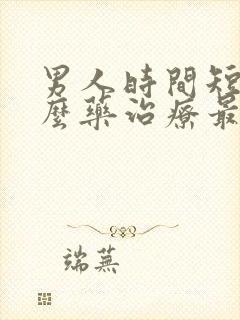 男人時間短
麼藥治療最
端蕪